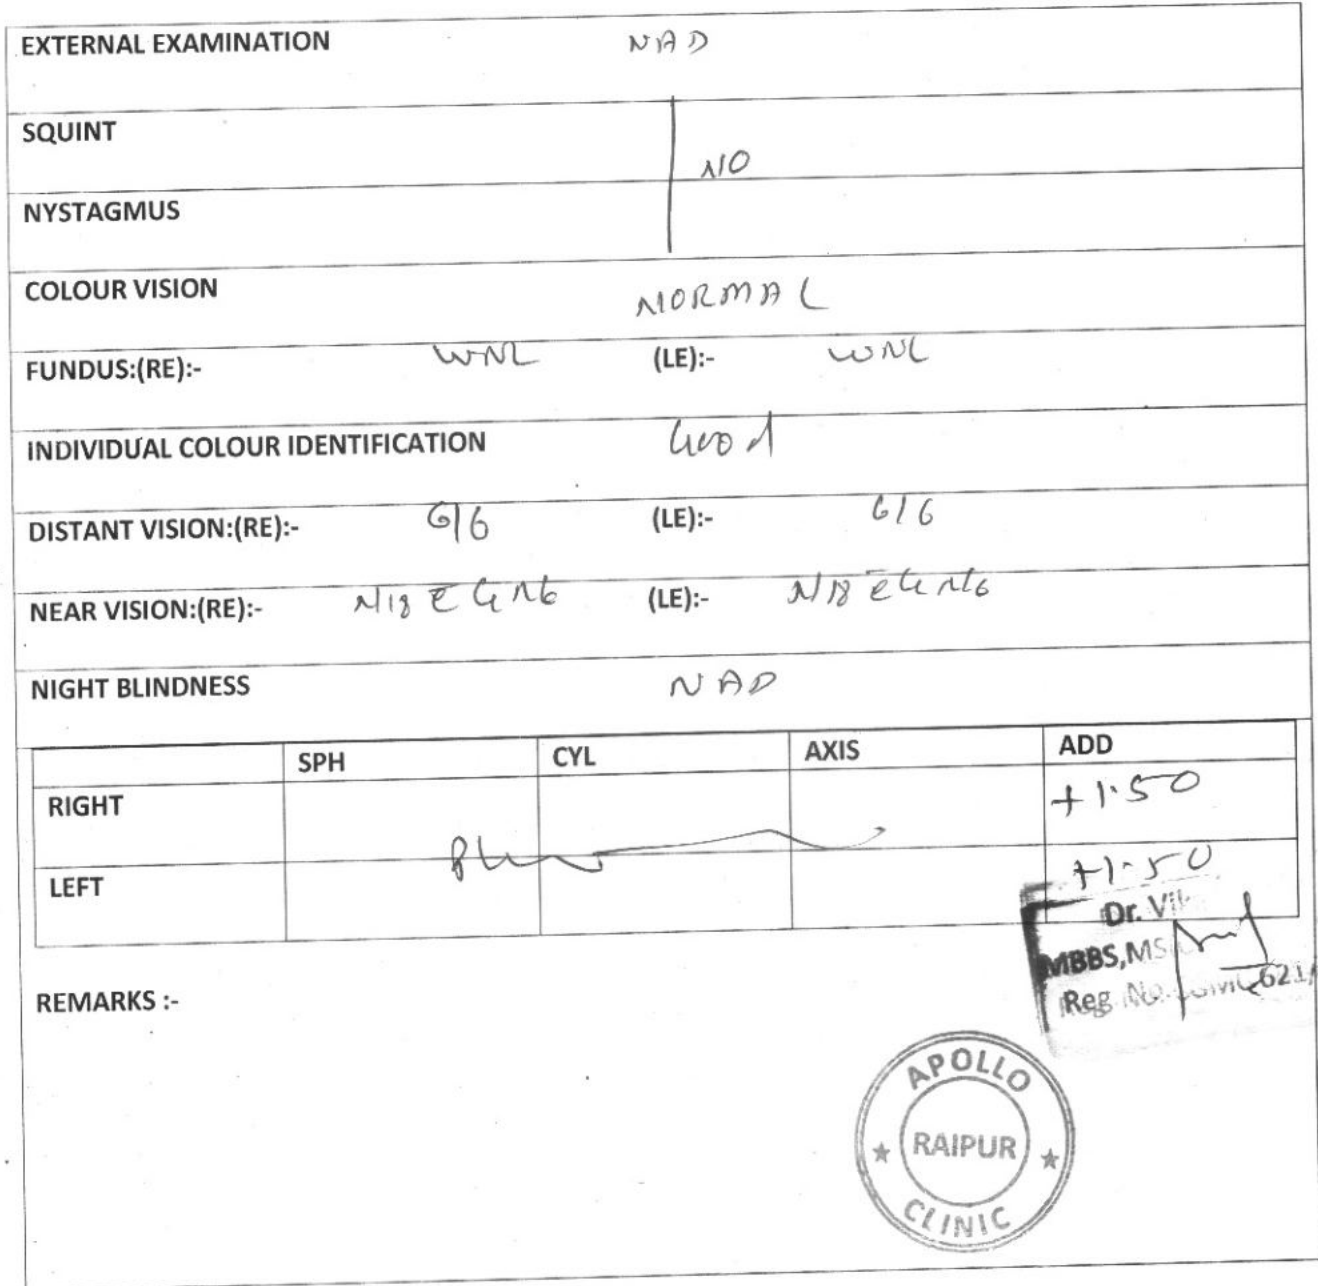 EXTERNAL EXAMINATION NAD
SQUINT
NO
NYSTAGMUS
COLOUR VISION NORMAL
FUNDUS:(RE):- WNL (LE):- WNL
INDIVIDUAL COLOUR IDENTIFICATION Good
DISTANT VISION:(RE):- 6/6 (LE):- 6/6
NEAR VISION:(RE):- N18 c̄ G N6 (LE):- N18 c̄ G N6
NIGHT BLINDNESS NAD
SPH CYL AXIS ADD
RIGHT +1.50
LEFT +1.50
Dr.
MBBS,MS
REMARKS :- Reg. No. 621/
APOLLO
RAIPUR
CLINIC